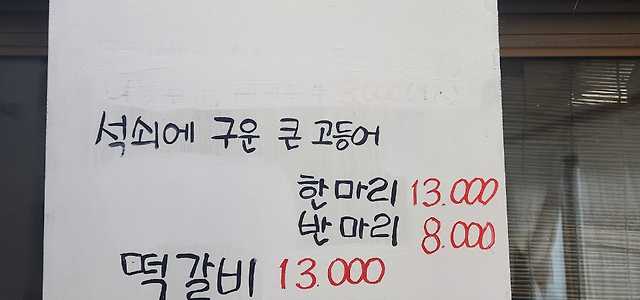 석쇠에 구운 큰 고등어
한마리 13.000
반마리 8.000
떡갈비 13.000